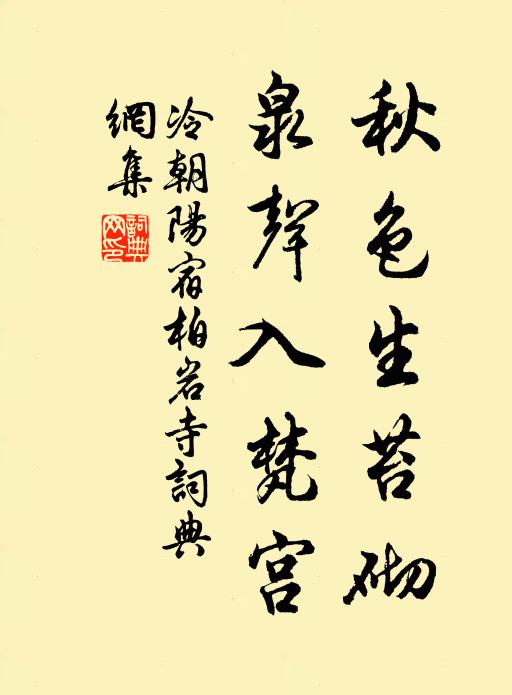 秋色生苔砌
泉聲入梵宫
冷朝陽宿柏岩寺詞典
網集
詞典
网印